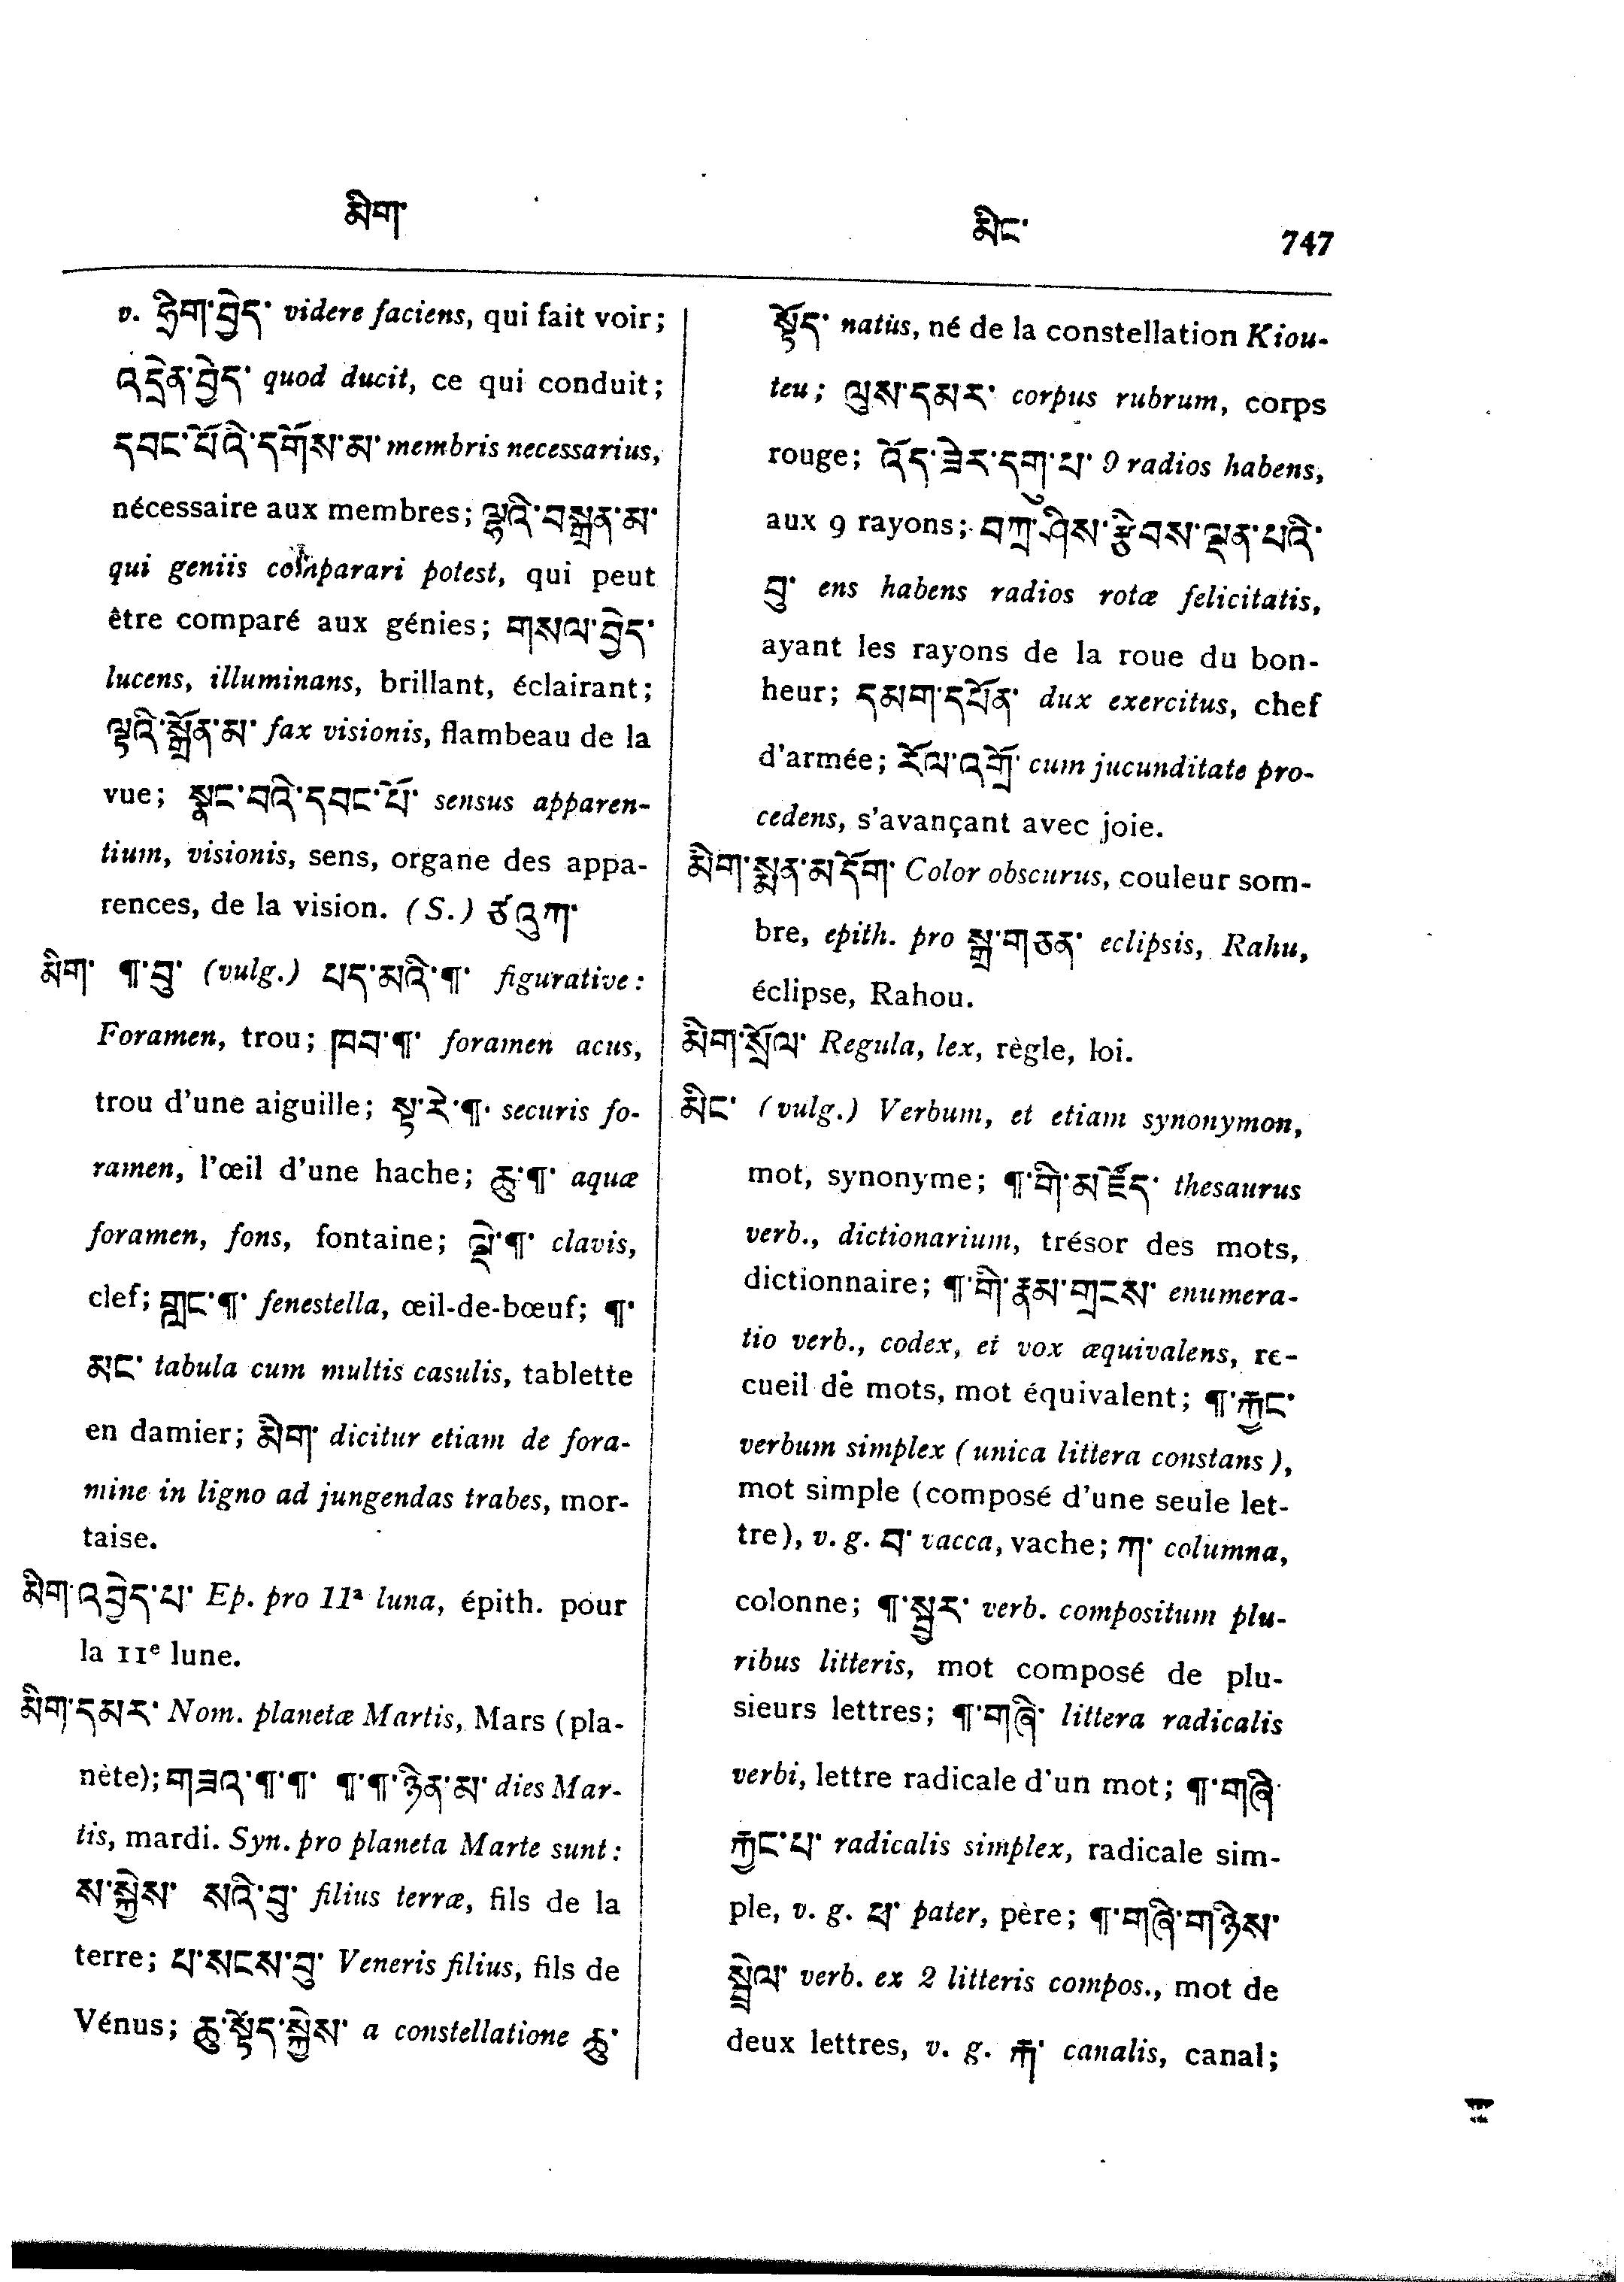 མིག་ མིང་ 747
v. ཧྲིག་བྱེད་ videre faciens, qui fait voir;
འདྲེན་བྱེད་ quod ducit, ce qui conduit;
དབང་པོའི་དགོས་མ་ membris necessarius,
nécessaire aux membres; ལྷའི་བསྒྲན་མ་
qui geniis comparari potest, qui peut
être comparé aux génies; གསལ་བྱེད་
lucens, illuminans, brillant, éclairant;
ལྟའི་སྒྲོན་མ་ fax visionis, flambeau de la
vue; སྣང་བའི་དབང་པོ་ sensus apparen-
tium, visionis, sens, organe des appa-
rences, de la vision. (S.) ཙའུཀ་
མིག་ ¶་བུ་ (vulg.) པད་མའི་¶་ figurative:
Foramen, trou; ཁབ་¶་ foramen acus,
trou d'une aiguille; སྟ་རེ་¶་ securis fo-
ramen, l'œil d'une hache; ཆུ་¶་ aquæ
foramen, fons, fontaine; ལྡེ་¶་ clavis,
clef; གླང་¶་ fenestella, œil-de-bœuf; ¶་
མང་ tabula cum multis casulis, tablette
en damier; མིག་ dicitur etiam de fora-
mine in ligno ad jungendas trabes, mor-
taise.
མིག་འབྱེད་པ་ Ep. pro 11ª luna, épith. pour
la 11e lune.
མིག་དམར་ Nom. planetæ Martis, Mars (pla-
nète); གཟའ་¶་¶་ ¶་¶་ཉེན་མ་ dies Mar-
tis, mardi. Syn. pro planeta Marte sunt:
ས་སྐྱེས་ སའི་བུ་ filius terræ, fils de la
terre; པ་སངས་བུ་ Veneris filius, fils de
Vénus; ཆུ་སྟོད་སྐྱེས་ a constellatione ཆུ་
སྟོད་ natus, né de la constellation Kiou-
teu; ལུས་དམར་ corpus rubrum, corps
rouge; འོད་ཟེར་དགུ་པ་ 9 radios habens,
aux 9 rayons; བཀྲ་ཤིས་རྩིབས་ལྡན་པའི་
བུ་ ens habens radios rotæ felicitatis,
ayant les rayons de la roue du bon-
heur; དམག་དཔོན་ dux exercitus, chef
d'armée; རོལ་འགྲོ་ cum jucunditate pro-
cedens, s'avançant avec joie.
མིག་སྨན་མདོག་ Color obscurus, couleur som-
bre, epith. pro སྒྲ་གཅན་ eclipsis, Rahu,
éclipse, Rahou.
མིག་སྲོལ་ Regula, lex, règle, loi.
མིང་ (vulg.) Verbum, et etiam synonymon,
mot, synonyme; ¶་གི་མཛོད་ thesaurus
verb., dictionarium, trésor des mots,
dictionnaire; ¶་གི་རྣམ་གྲངས་ enumera-
tio verb., codex, et vox æquivalens, re-
cueil de mots, mot équivalent; ¶་རྐྱང་
verbum simplex (unica littera constans),
mot simple (composé d'une seule let-
tre), v. g. བ་ vacca, vache; ཀ་ columna,
colonne; ¶་སྦྱར་ verb. compositum plu-
ribus litteris, mot composé de plu-
sieurs lettres; ¶་གཞི་ littera radicalis
verbi, lettre radicale d'un mot; ¶་གཞི་
རྐྱང་པ་ radicalis simplex, radicale sim-
ple, v. g. ཕ་ pater, père; ¶་གཞི་གཉིས་
སྦྲེལ་ verb. ex 2 litteris compos., mot de
deux lettres, v. g. རྐ་ canalis, canal;